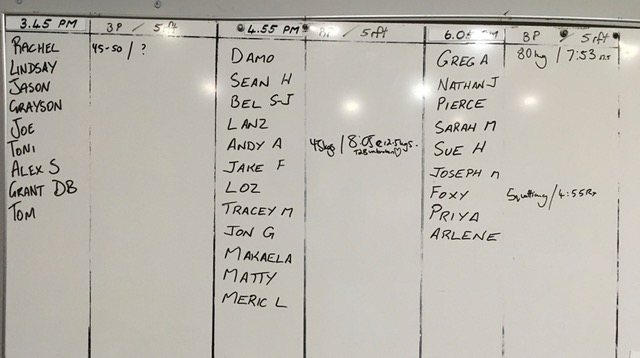 3.45 PM BP / 5rft
RACHEL 45-50 / ?
LINDSAY
JASON
GRAYSON
JOE
TONI
ALEX S
GRANT DB
TOM
4.55 PM BP / 5rft
DAMO
SEAN H
BEL S-J
LANZ
ANDY A 45kgs / 8:05 @ 12.5kgs.
JAKE F
LOZ
TRACEY M
JON G
MAKAELA
MATTY
MERIC L
6.05 PM BP / 5rft
GREG A 80kg / 7:53
NATHAN J
PIERCE
SARAH M
SUE H
JOSEPH n
FOXY / 4:55Rx
PRIYA
ARLENE